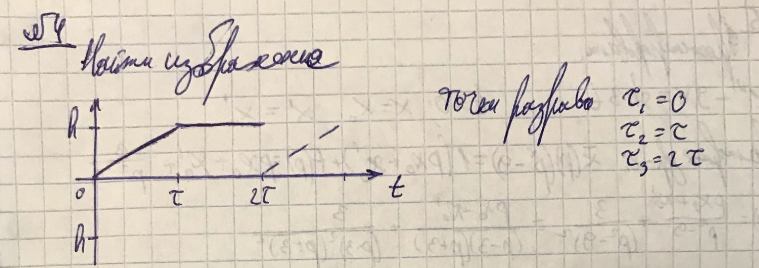 №4
Найти изображения
точки разрыва τ₁ = 0
τ₂ = τ
τ₃ = 2τ
h
0 τ 2τ t
h